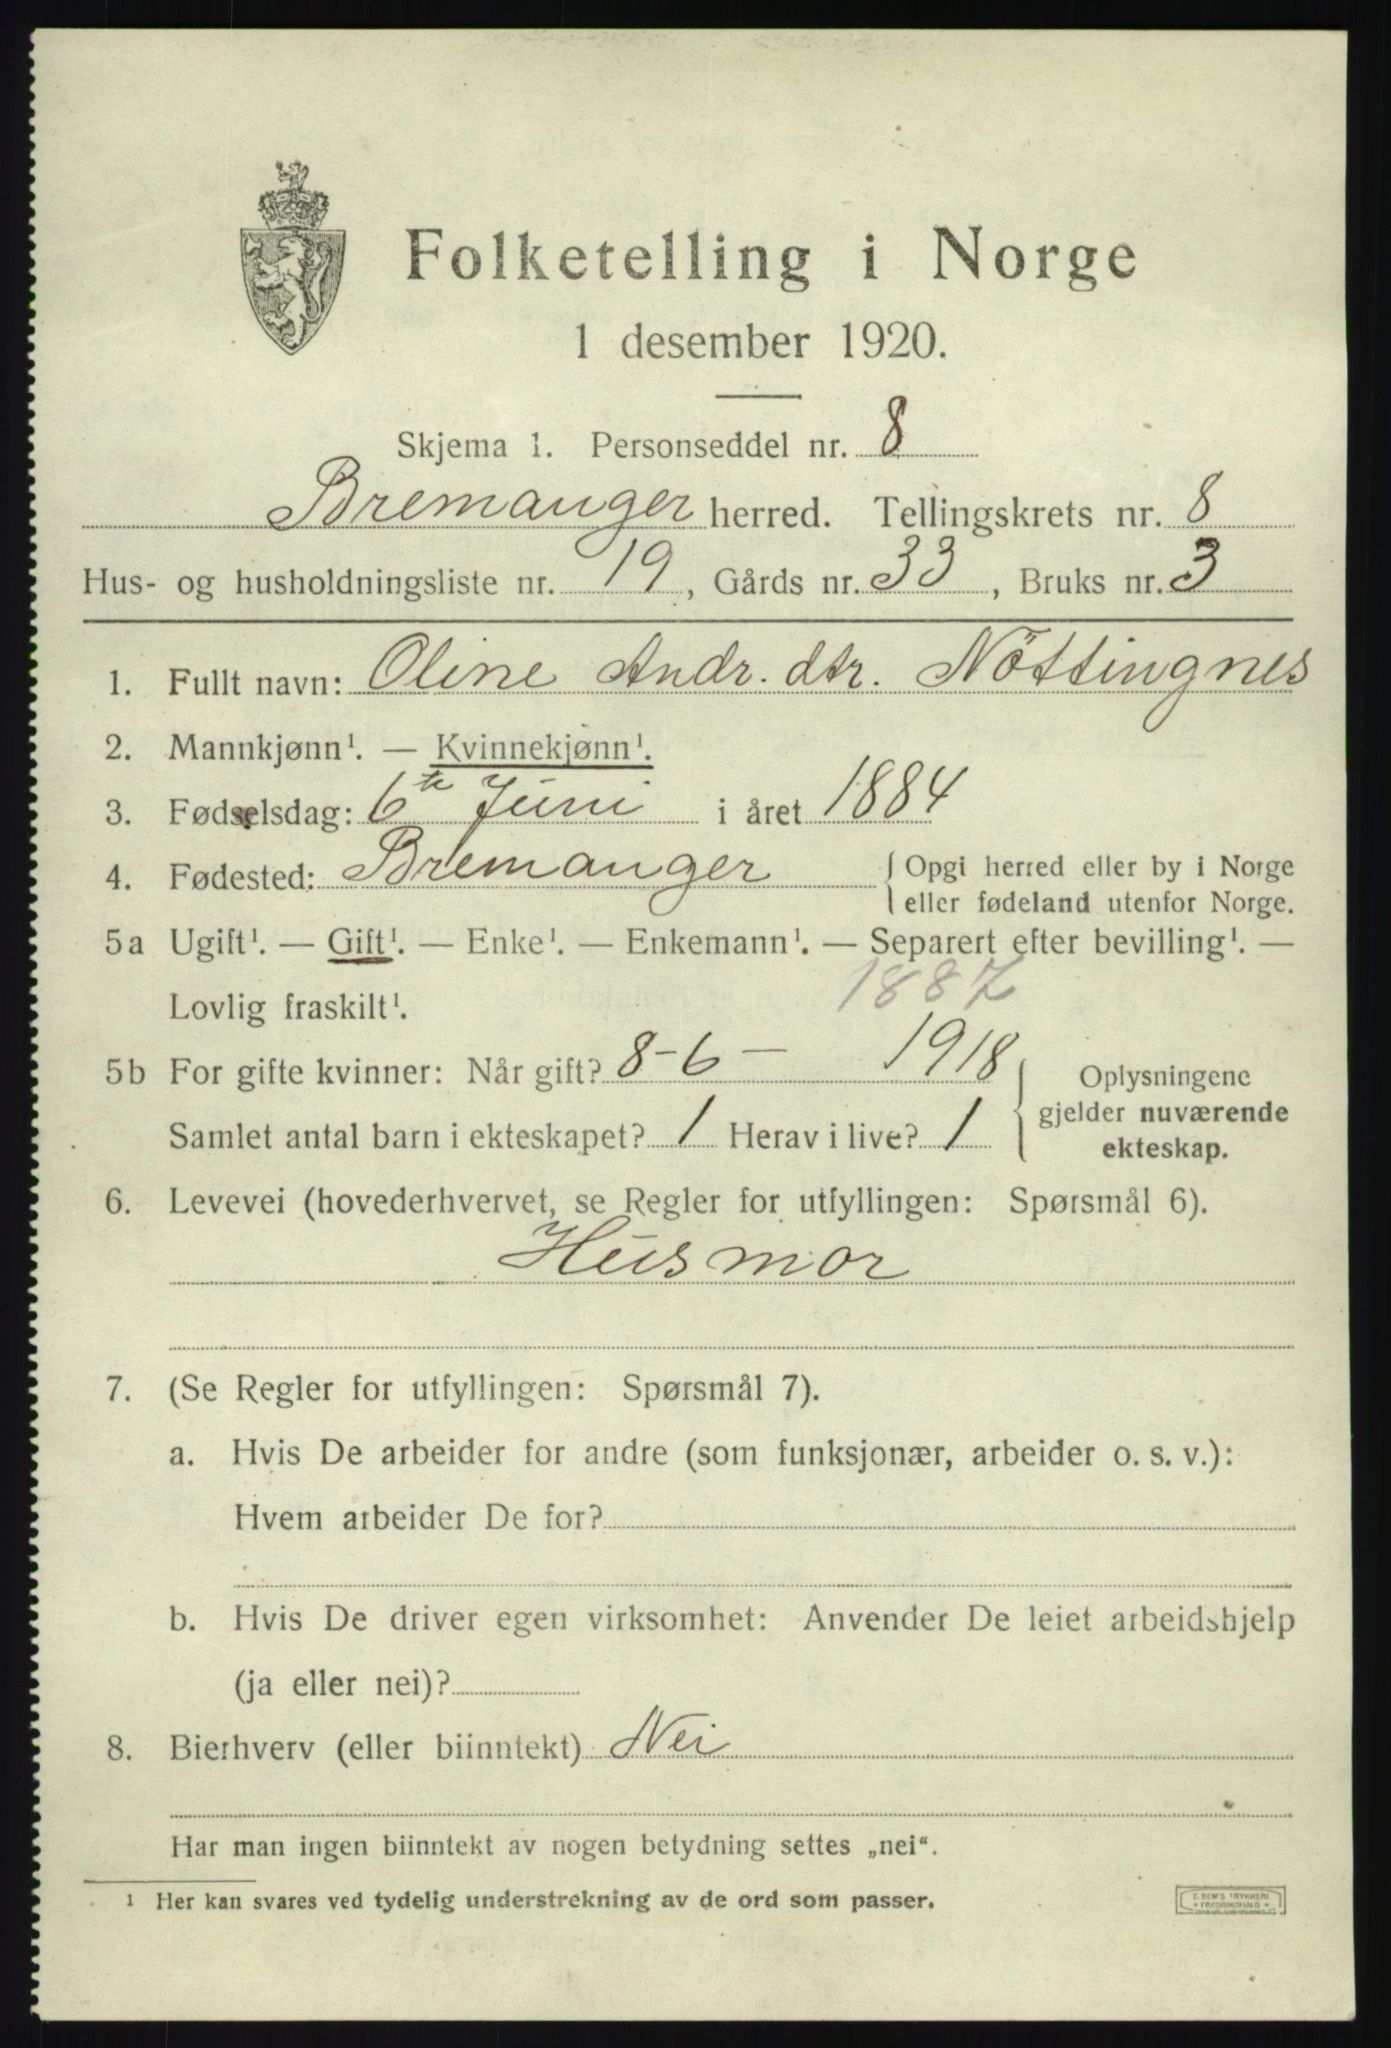 Folketelling i Norge
1 desember 1920.
Skjema 1. Personseddel nr. 8
Bremanger herred. Tellingskrets nr. 8
Hus- og husholdningsliste nr. 19, Gårds nr. 33, Bruks nr. 3
1. Fullt navn: Oline Andr. dtr. Nöttingnes
2. Mannkjønn¹. — Kvinnekjønn¹.
3. Fødselsdag: 6te Juni i året 1884
4. Fødested: Bremanger { Opgi herred eller by i Norge
eller fødeland utenfor Norge.
5a Ugift¹. — Gift¹. — Enke¹. — Enkemann¹. — Separert efter bevilling¹. —
Lovlig fraskilt¹. 1887
5b For gifte kvinner: Når gift? 8-6- 1918
Samlet antal barn i ekteskapet? 1 Herav i live? 1
Oplysningene
gjelder nuværende
ekteskap.
6. Levevei (hovederhvervet, se Regler for utfyllingen: Spørsmål 6).
Husmor
7. (Se Regler for utfyllingen: Spørsmål 7).
a. Hvis De arbeider for andre (som funksjonær, arbeider o. s. v.):
Hvem arbeider De for?
b. Hvis De driver egen virksomhet: Anvender De leiet arbeidshjelp
(ja eller nei)?
8. Bierhverv (eller biinntekt) Nei
Har man ingen biinntekt av nogen betydning settes „nei“.
¹ Her kan svares ved tydelig understrekning av de ord som passer.
E. SEM'S TRYKKERI
* FREDRIKSHALD *